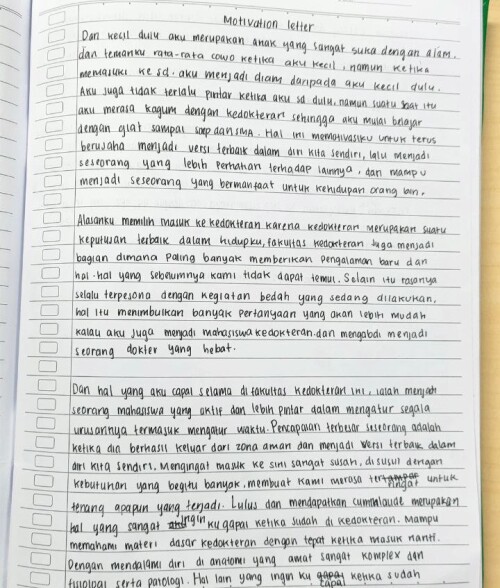 Motivation letter
Dari kecil dulu aku merupakan anak yang sangat suka dengan alam.
dan temanku rata-rata cowo ketika aku kecil, namun ketika
memasuki ke sd. aku menjadi diam daripada aku kecil dulu.
Aku juga tidak terlalu pintar ketika aku sd dulu, namun suatu saat itu
aku merasa kagum dengan kedokteran sehingga aku mulai belajar
dengan giat sampai smp dan SMA. Hal ini memotivasiku untuk terus
berusaha menjadi versi terbaik dalam diri kita sendiri, lalu menjadi
seseorang yang lebih perhatian terhadap lainnya, dan mampu
menjadi seseorang yang bermanfaat untuk kehidupan orang lain.
Alasanku memilih masuk ke kedokteran karena kedokteran merupakan suatu
keputusan terbaik dalam hidupku, fakultas kedokteran juga menjadi
bagian dimana paling banyak memberikan pengalaman baru dan
hal-hal yang sebelumnya kami tidak dapat temui. Selain itu rasanya
selalu terpesona dengan kegiatan bedah yang sedang dilakukan,
hal itu menimbulkan banyak pertanyaan yang akan lebih mudah
kalau aku juga menjadi mahasiswa kedokteran. dan mengabdi menjadi
seorang dokter yang hebat.
Dan hal yang aku capai selama di fakultas kedokteran ini, ialah menjadi
seorang mahasiswa yang aktif dan lebih pintar dalam mengatur segala
urusannya termasuk mengatur waktu. Pencapaian terbesar seseorang adalah
ketika dia berhasil keluar dari zona aman dan menjadi versi terbaik dalam
diri kita sendiri. Mengingat masuk ke sini sangat susah, disusul dengan
kebutuhan yang begitu banyak, membuat kami merasa teringat untuk
terang apapun yang terjadi. Lulus dan mendapatkan cummlaude merupakan
hal yang sangat ingin ku gapai ketika sudah di kedokteran. Mampu
memahami materi dasar kedokteran dengan tepat ketika masuk nanti.
Dengan mendalami diri di anatomi yang amat sangat komplex dan
fisiologi serta patologi. Hal lain yang ingin ku capai ketika sudah